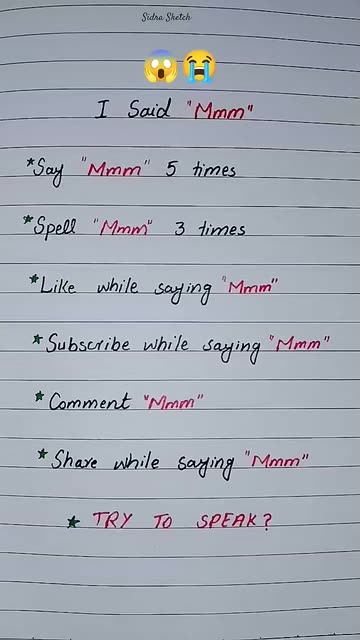 Sidra Sketch
😱😭
I Said "Mmm"
*Say "Mmm" 5 times
*Spell "Mmm" 3 times
*Like while saying "Mmm"
*Subscribe while saying "Mmm"
*Comment "Mmm"
*Share while saying "Mmm"
★ TRY TO SPEAK?